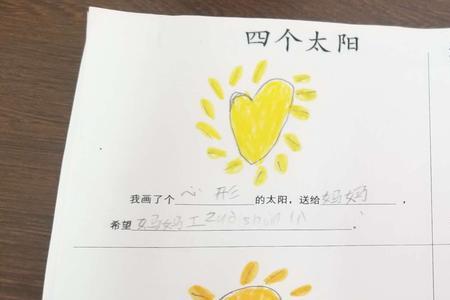 四个太阳
我画了个心形的太阳，送给妈妈，
希望妈妈工zuo shun li。